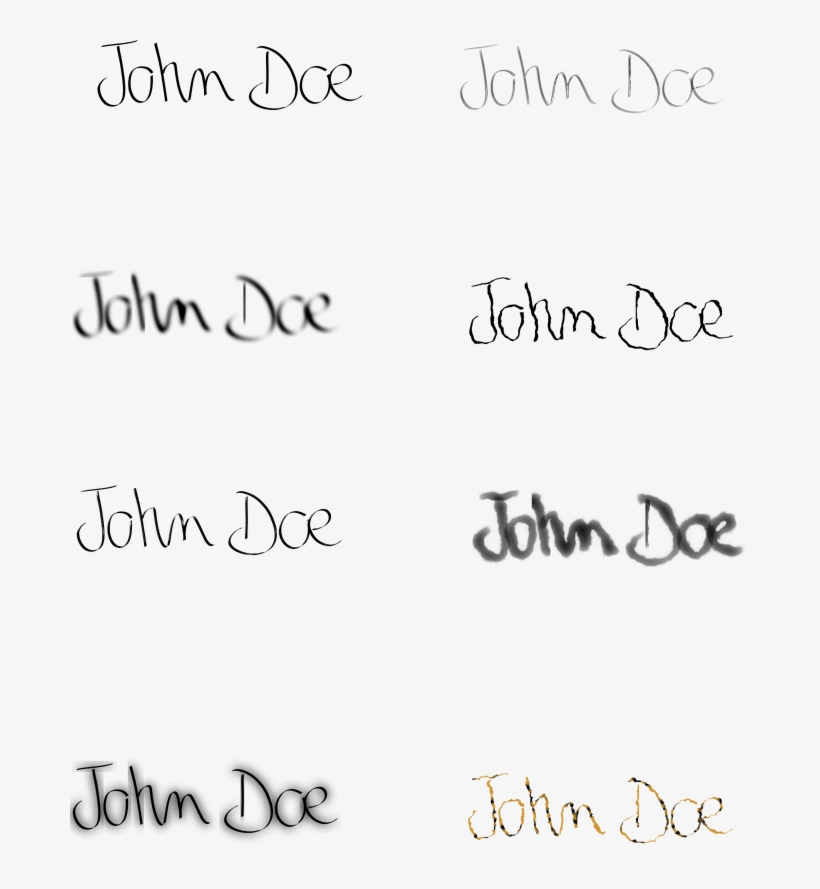 John Doe John Doe
John Doe John Doe
John Doe John Doe
John Doe John Doe